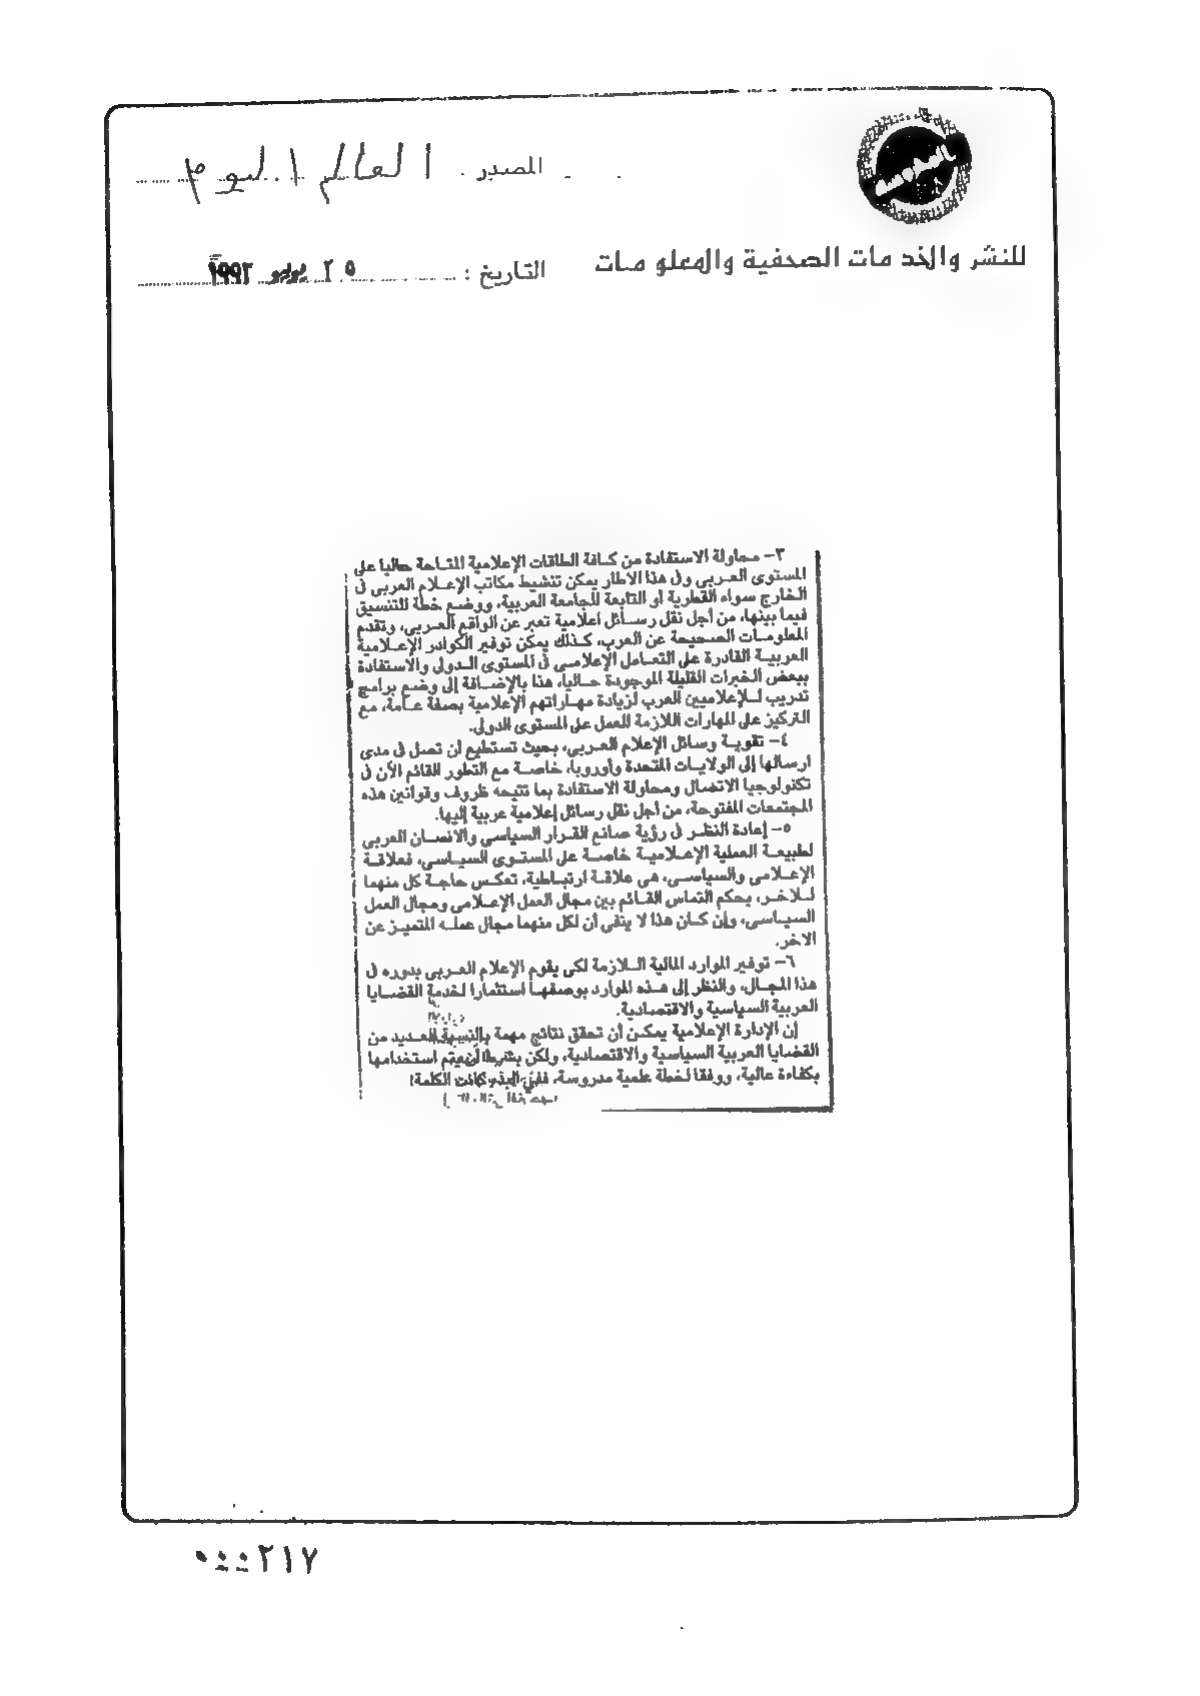 المصدر : العالم اليوم
للنشر والخدمات الصحفية والمعلومات
التاريخ : ٢٥ يوليو ١٩٩٢
٣- محاولة الاستفادة من كافة الطاقات الإعلامية المتاحة حاليا على
المستوى العربى وفى هذا الاطار يمكن تنشيط مكاتب الإعلام العربى فى
الخارج سواء القطرية أو التابعة للجامعة العربية، ووضع خطة للتنسيق
فيما بينها، من أجل نقل رسائل اعلامية تعبر عن الواقع العربى، وتقدم
المعلومات الصحيحة عن العرب، كذلك يمكن توفير الكوادر الإعلامية
العربية القادرة على التعامل الإعلامى فى المستوى الدولى والاستفادة
ببعض الخبرات القليلة الموجودة حاليا، هذا بالإضافة إلى وضع برامج
تدريب للإعلاميين العرب لزيادة مهاراتهم الإعلامية بصفة عامة، مع
التركيز على المهارات اللازمة للعمل على المستوى الدولى.
٤- تقوية وسائل الإعلام العربى، بحيث تستطيع أن تصل فى مدى
ارسالها إلى الولايات المتحدة وأوروبا، خاصة مع التطور القائم الأن فى
تكنولوجيا الاتصال ومحاولة الاستفادة بما تتيحه ظروف وقوانين هذه
المجتمعات المفتوحة، من أجل نقل رسائل إعلامية عربية إليها.
٥- إعادة النظر فى رؤية صانع القرار السياسى والانسان العربى
لطبيعة العملية الإعلامية خاصة على المستوى السياسى، فعلاقة
الإعلامى والسياسى، هى علاقة ارتباطية، تعكس حاجة كل منهما
للاخر، بحكم التماس القائم بين مجال العمل الإعلامى ومجال العمل
السياسى، وإن كان هذا لا ينفى أن لكل منهما مجال عمله المتميز عن
الاخر.
٦- توفير الموارد المالية اللازمة لكى يقوم الإعلام العربى بدوره فى
هذا المجال، والنظر إلى هذه الموارد بوصفها استثمارا لخدمة القضايا
العربية السياسية والاقتصادية.
إن الإدارة الإعلامية يمكن أن تحقق نتائج مهمة بالنسبة للعديد من
القضايا العربية السياسية والاقتصادية، ولكن بشرط أن يتم استخدامها
بكفاءة عالية، ووفقا لخطة علمية مدروسة، ففى البدء كانت الكلمة!
٢١٧